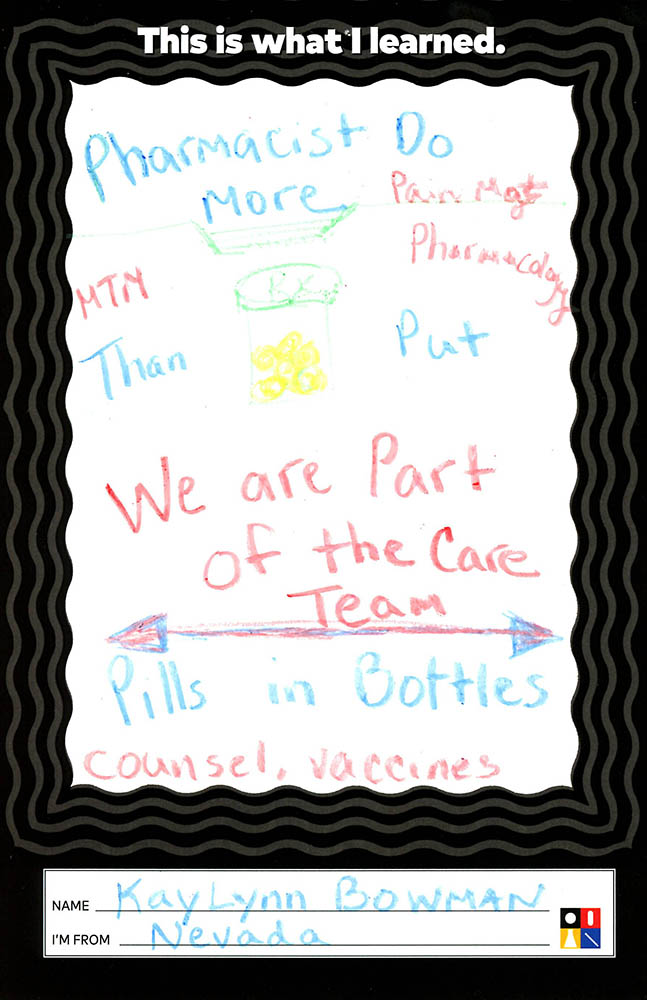 This is what I learned.
Pharmacist Do
More
Pain Mgt
Pharmacology
MTM
Than
Put
We are Part
of the Care
Team
Pills in Bottles
counsel, vaccines
NAME KayLynn BOWMAN
I'M FROM Nevada